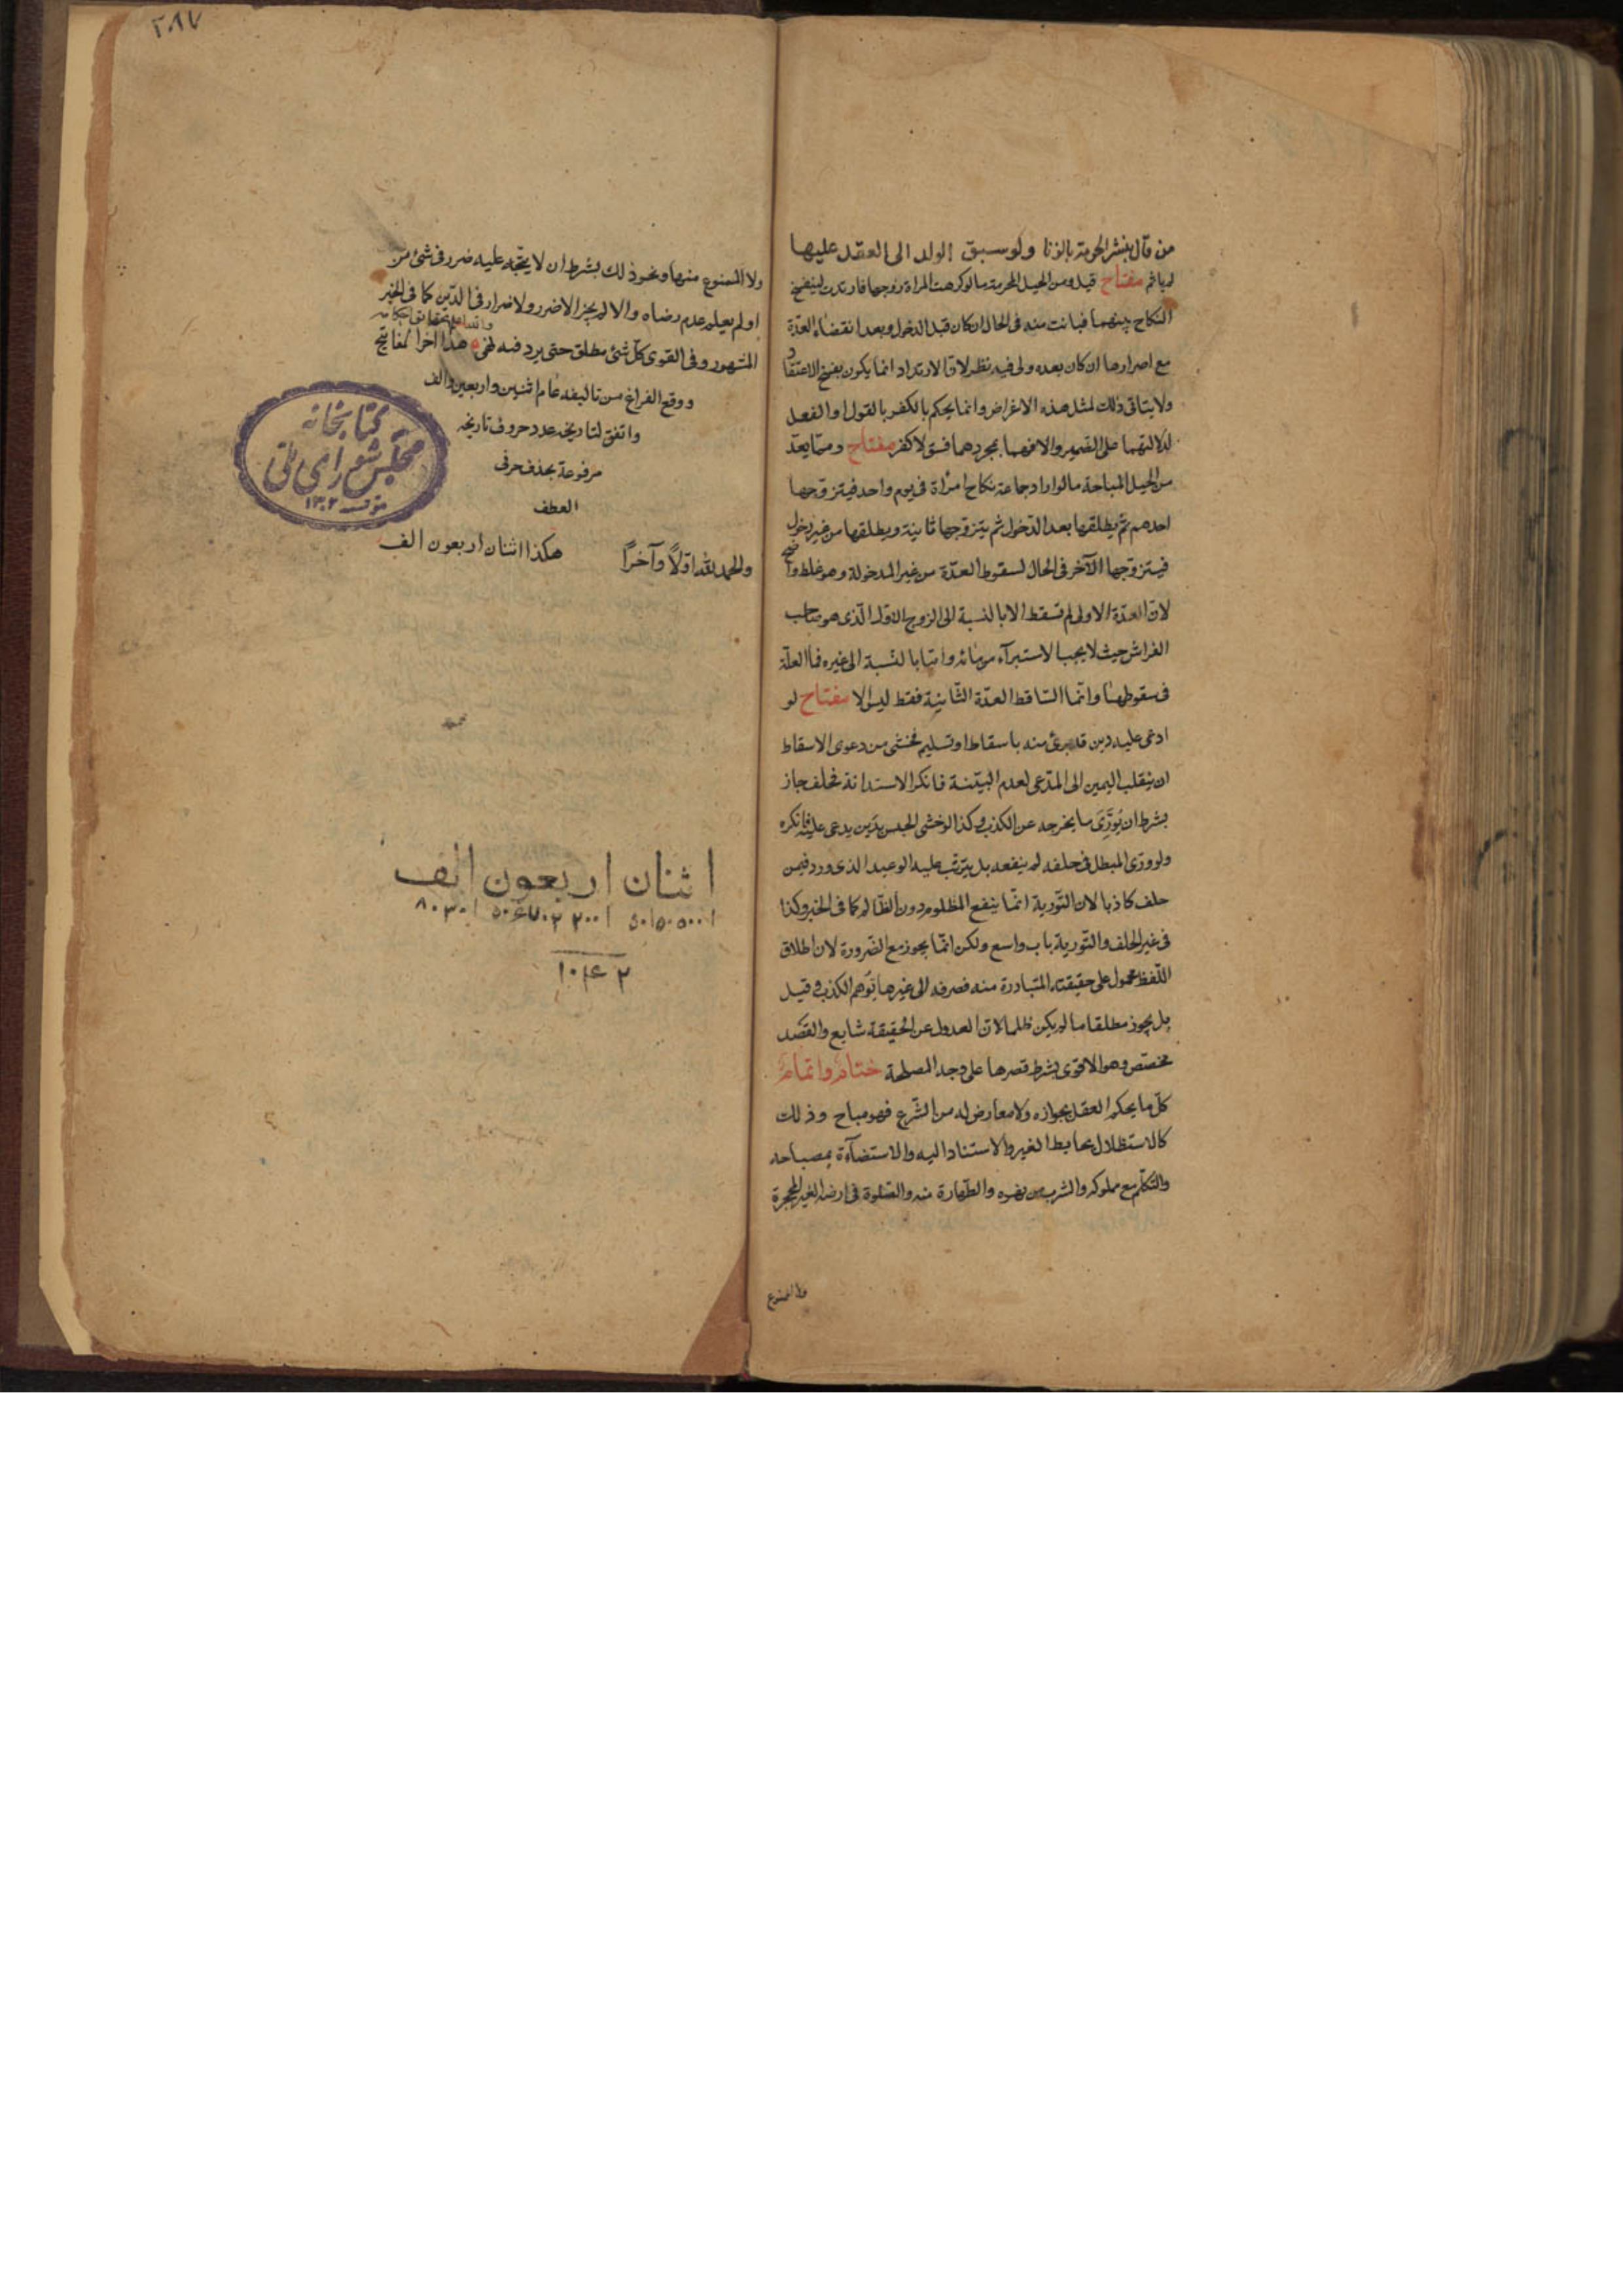 من قال بنشر الحرمة بالزنا ولو سبق الولد الى العقد عليها
لم ياثم مفتاح قيل ومن الحيل المحرمة ما لو كرهت المراة زوجها فارتدت لينفسخ
النكاح بينهما فبانت منه فى الحال ان كان قبل الدخول وبعد انقضاء العدّة
مع اصرارها ان كان بعده ولى فيه نظر لانّ الارتداد انما يكون بفسخ الاعتقاد
ولا يتاتى ذلك لمثل هذه الاغراض وانما يحكم بالكفر بالقول او الفعل
لدلالتهما على الضمير والا فهما بمجردهما فسق لا كفر مفتاح وممّا يعدّ
من الحيل المباحة ما لو اراد جماعة نكاح امرأة فى يوم واحد فيتزوّجها
احدهم ثمّ يطلقها بعد الدّخول ثم يتزوّجها ثانية ويطلقها من غير دخول
فيتزوّجها الآخر فى الحال لسقوط العدّة من غير المدخولة وهو غلط واضح
لانّ العدّة الاولى لم تسقط الا بالنسبة الى الزوج الاول الّذى هو صاحب
الفراش حيث لا يجب الاستبرآء من مائه وامّا بالنّسبة الى غيره فما العلّة
فى سقوطها وانّما السّاقط العدّة الثّانية فقط ليس الا مفتاح لو
ادعى عليه دين قد برئ منه باسقاط او تسليم فخشى من دعوى الاسقاط
ان ينقلب اليمين الى المدّعى لعدم البيّنة فانكر الاستدانة فحلف جاز
بشرط ان يُوَرِّىَ ما يخرجه عن الكذب وكذا لو خشى الحبس بدَين يدعى عليه فانكره
ولو ورّى المبطل فى حلفه لم ينفعه بل يترتّب عليه الوعيد الذى ورد فيمن
حلف كاذبا لان التّورية انمّا ينفع المظلوم دون الظّالم كما فى الخبر وكذا
فى غير الحلف والتّورية باب واسع ولكن انمّا يجوز مع الضّرورة لان اطلاق
اللّفظ محمول على حقيقته المتبادرة منه فصرفه الى غيرها تُوهم الكذب وقيل
بل يجوز مطلقا ما لم يكن ظلما لانّ العدول عن الحقيقة شايع والقصد
مخصّص وهو الاقوى بشرط قصرها على وجه المصلحة ختام واتمام
كلّ ما يحكم العقل بجوازه ولا معارض له من الشّرع فهو مباح وذلك
كالاستظلال بحايط الغير والاستناد اليه والاستضآءة بمصباحه
والتكلّم مع مملوكه والشرب من نهره والطّهارة منه والصّلوة فى ارض الغير المحجرة
ولا الممنوع
٢٠٩٧
ولا الممنوع منها ونحو ذلك بشرط ان لا يتّجه عليه ضرر فى شئ من
او لم يعلم عدم رضاه والا لم يجز الا ضرر ولا ضرار فى الدّين كما فى الخبر
المشهور وفى القوى كلّ شئ مطلق حتى يرد فيه نهى هذا آخر المفاتيح
ووقع الفراغ من تاليفه عام اثنين واربعين والف
واتفق لتاريخه عدد حروف تاريخه
مرفوعة بحذف حرفى
العطف
هكذا اثنان اربعون الف
والحمد لله اوّلاً وآخراً
كتابخانه
مجلس شوراى ملّى
١٣٠٢
اثنان اربعون الف
١٠٤٢